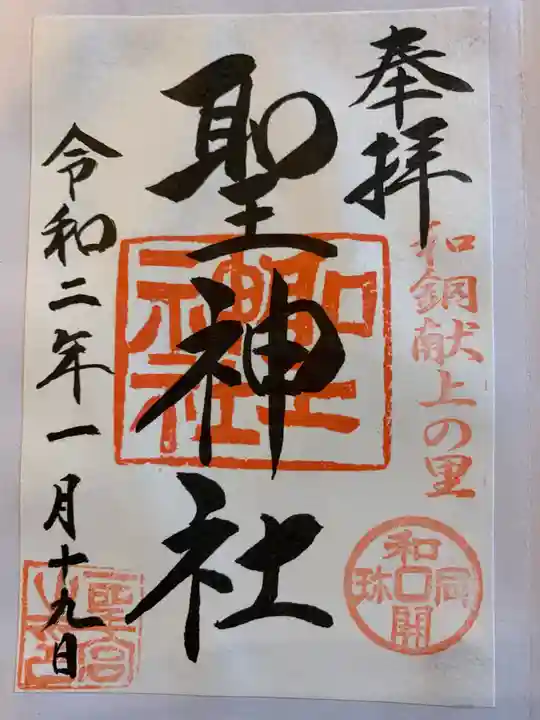 奉拝
和銅献上の里
和同開珎
聖神社
聖神社
令和二年一月十九日